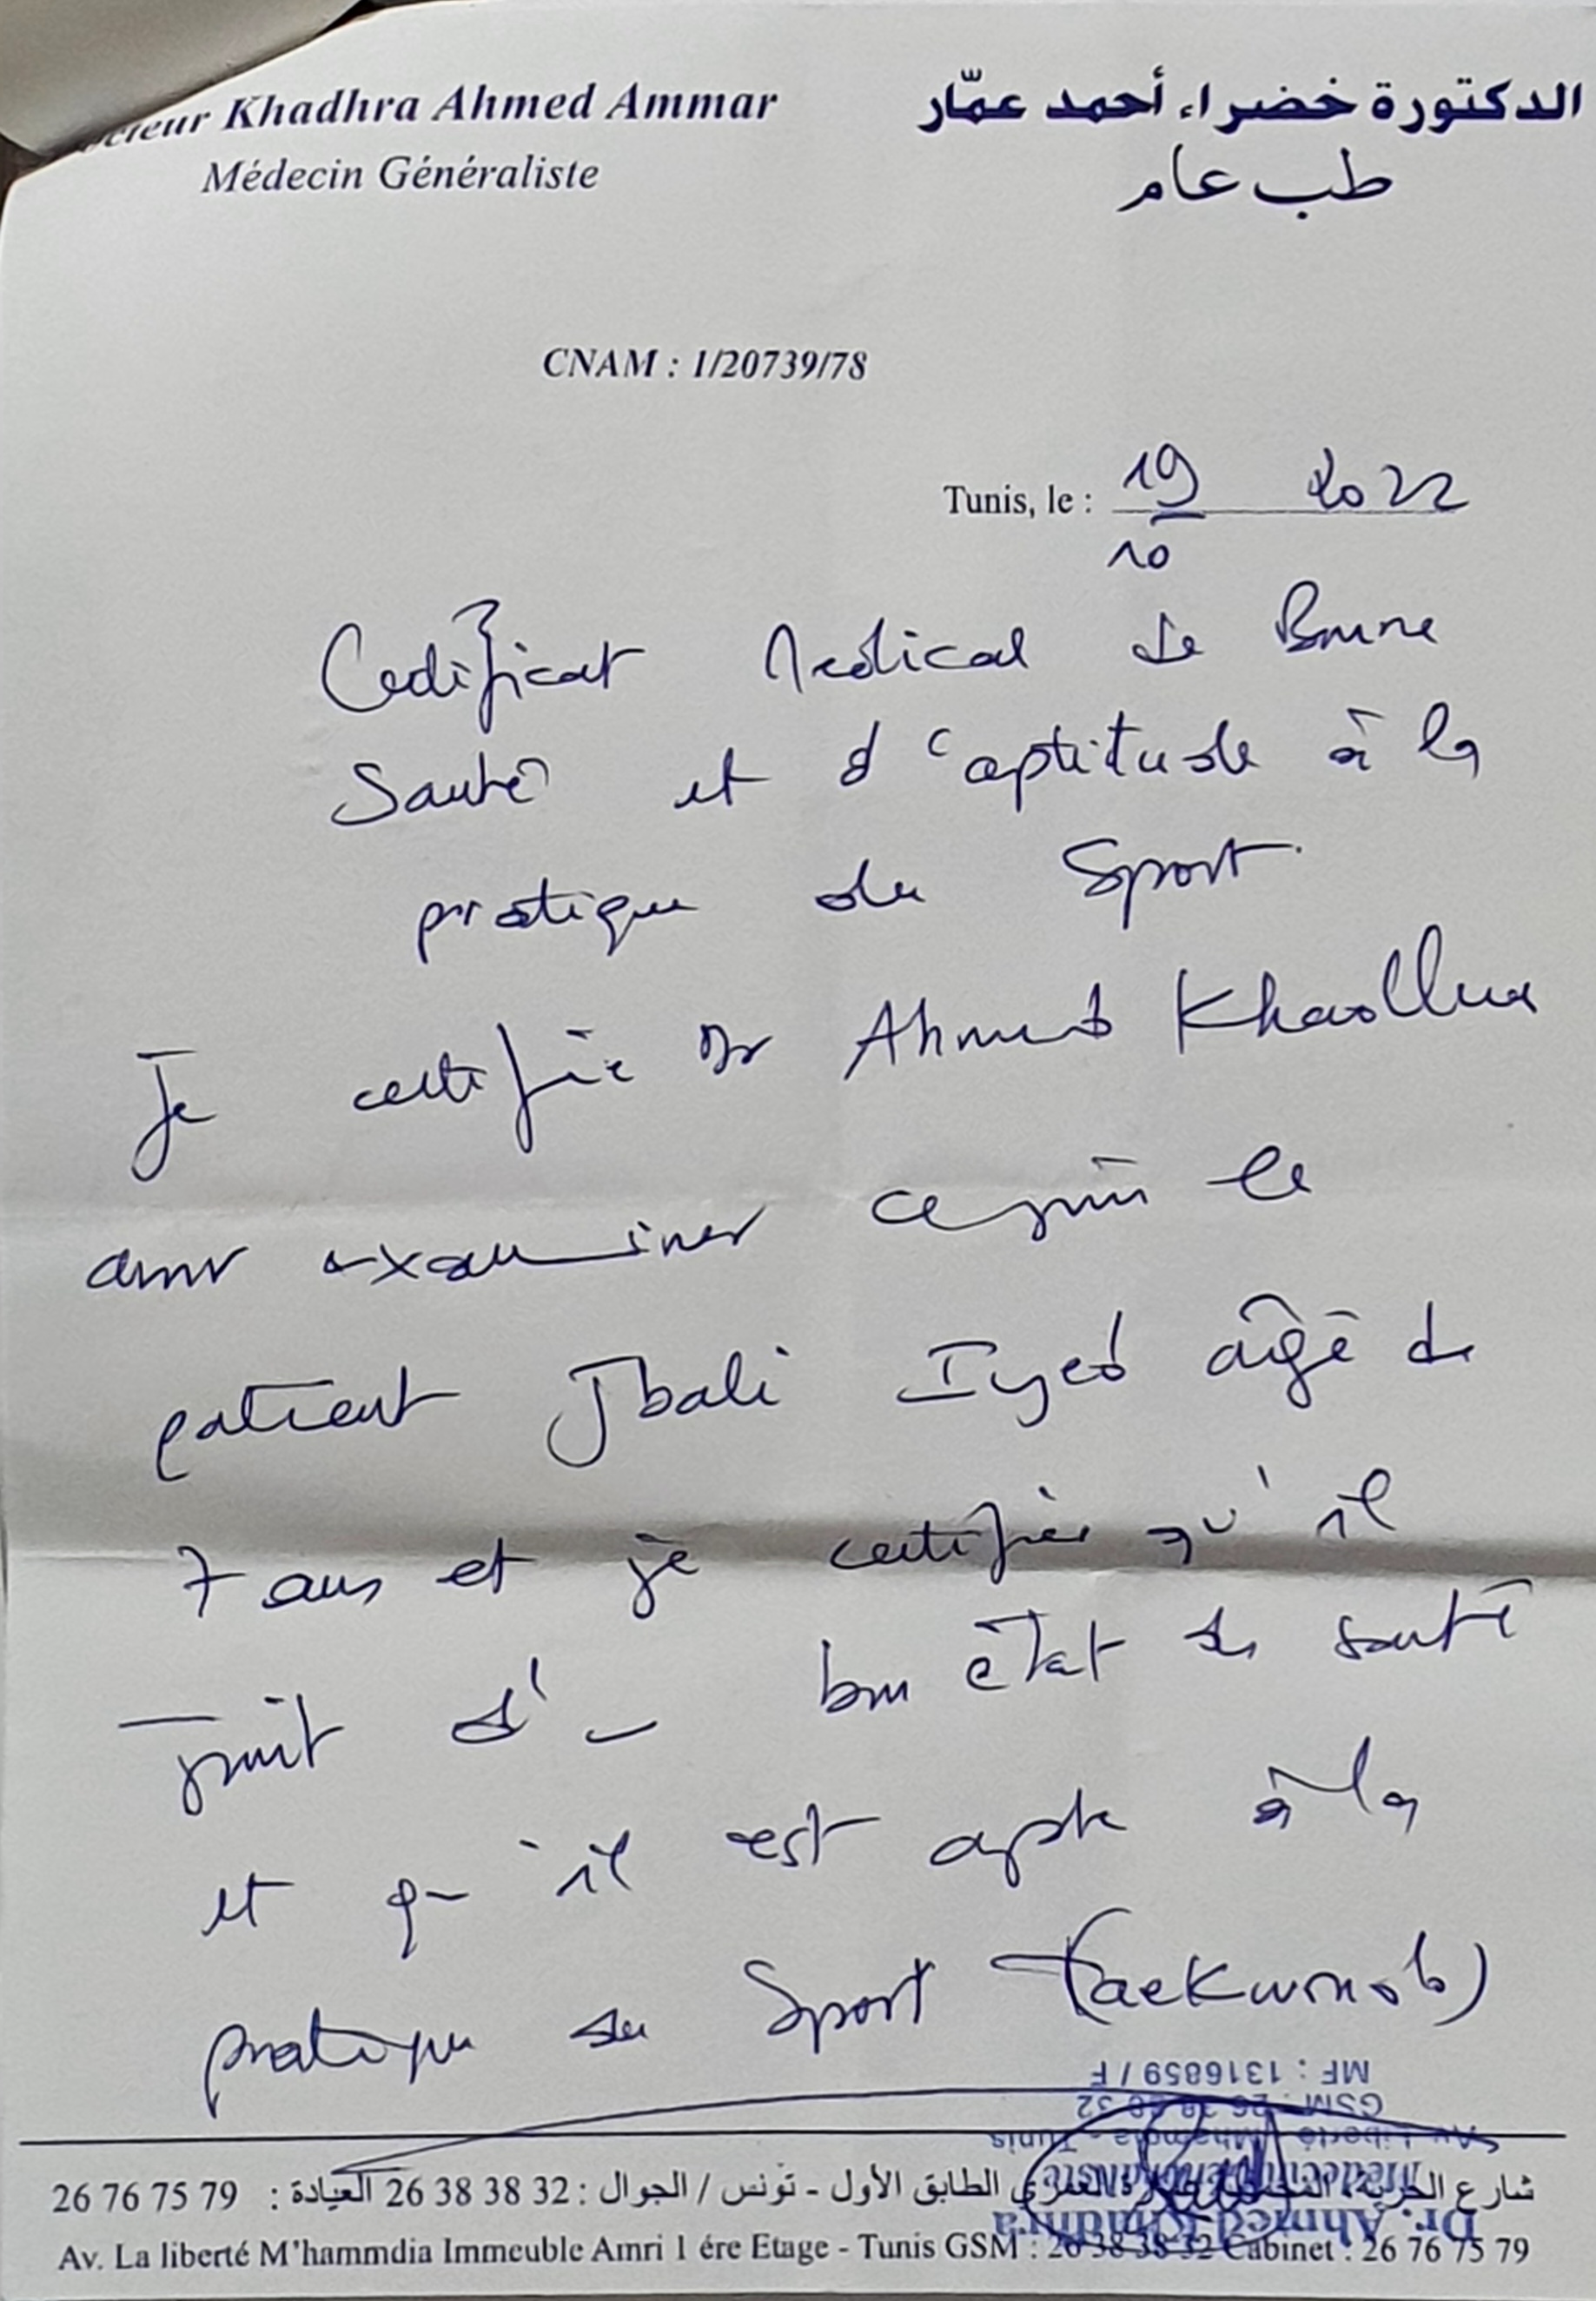 Docteur Khadhra Ahmed Ammar
Médecin Généraliste
الدكتورة خضراء أحمد عمّار
طب عام
CNAM : 1/20739/78
Tunis, le : 19 2022
10
Certificat Medical de Bonne
Santé et d'aptitude à la
pratique du Sport.
Je certifie Dr Ahmed Khadhra
avoir examiner ce jour le
patient Jbali Iyed âgé de
7 ans et je certifie qu'il
jouit d'un bon état de santé
et qu'il est apte à la
pratique du Sport (Taekwondo)
MF : 1316859 / F
GSM : 26 38 38 32
Av. Liberté Mhamdia - Tunis
Médecin Généraliste
Dr. Ahmed Khadhra
شارع الحرية، المحمدية عمارة العمري الطابق الأول - تونس / الجوال : 32 38 38 26 العيادة : 79 75 76 26
Av. La liberté M'hammdia Immeuble Amri 1 ére Etage - Tunis GSM : 26 38 38 32 Cabinet : 26 76 75 79